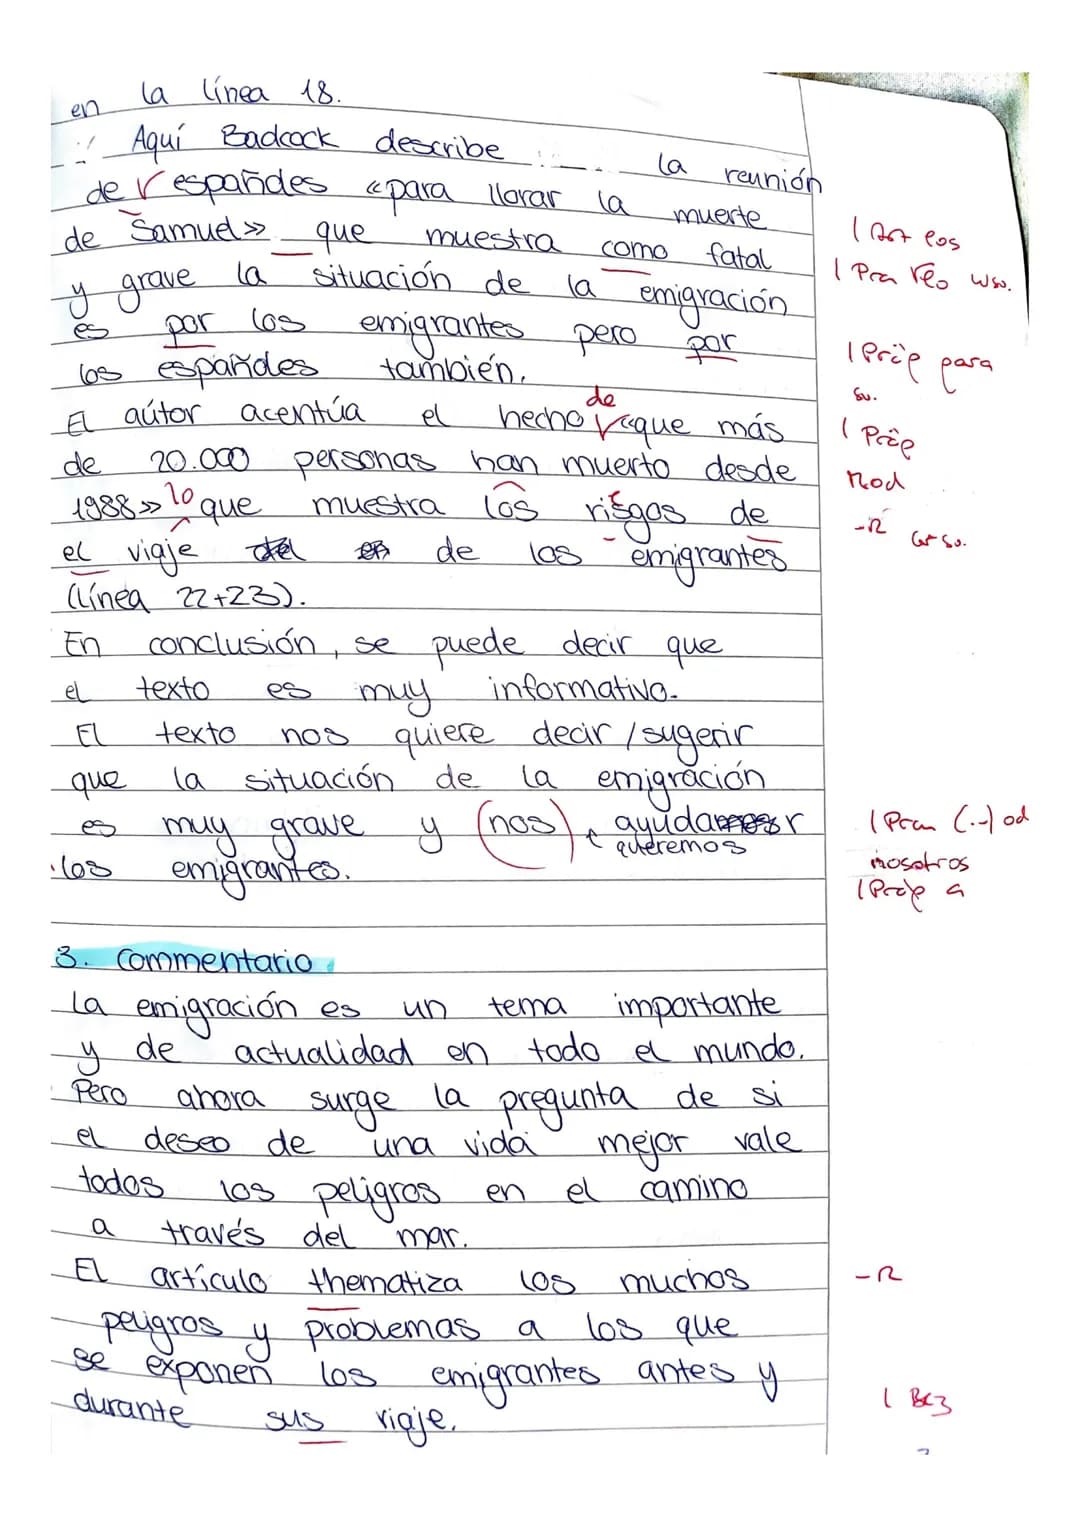 en la línea 18.
Aquí Badcock describe la reunión
de españoles «para llorar la muerte
de Samuel» que muestra como fatal
y grave la situación de la emigración
es por los emigrantes pero por
los españoles también.
El aútor acentúa el hecho de «que más
de 20.000 personas han muerto desde
1988» lo que muestra los riesgos de
el viaje de los emigrantes
(línea 22+23).
En conclusión, se puede decir que
el texto es muy informativo.
El texto nos quiere decir/sugerir
que la situación de la emigración
es muy grave y (nos) queremos ayudar
los emigrantes.
3. Commentario
La emigración es un tema importante
y de actualidad en todo el mundo.
Pero ahora surge la pregunta de si
el deseo de una vida mejor vale
todos los peligros en el camino
a través del mar.
El artículo thematiza los muchos
peligros y problemas a los que
se exponen los emigrantes antes y
durante sus viaje.
1 Art los
1 Präp para
1 Präp
Mod
-R
nosotros
1 Präp a
-R
1 Bez